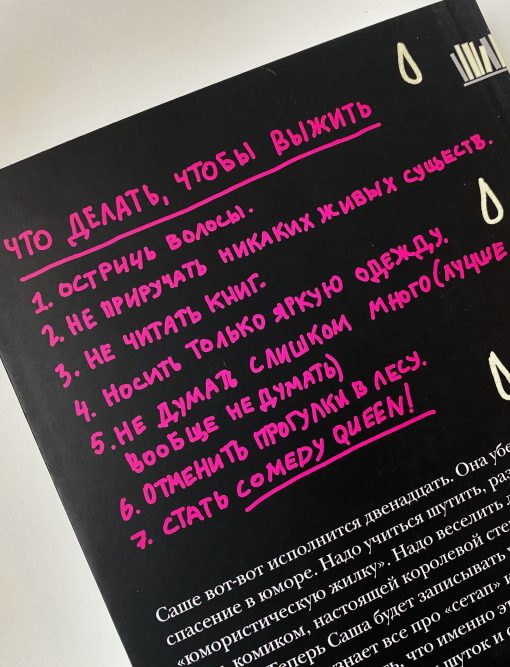 ЧТО ДЕЛАТЬ, ЧТОБЫ ВЫЖИТЬ
1. ОСТРИЧЬ ВОЛОСЫ.
2. НЕ ПРИРУЧАТЬ НИКАКИХ ЖИВЫХ СУЩЕСТВ.
3. НЕ ЧИТАТЬ КНИГ.
4. НОСИТЬ ТОЛЬКО ЯРКУЮ ОДЕЖДУ.
5. НЕ ДУМАТЬ СЛИШКОМ МНОГО (ЛУЧШЕ
ВООБЩЕ НЕ ДУМАТЬ)
6. ОТМЕНИТЬ ПРОГУЛКИ В ЛЕСУ.
7. СТАТЬ COMEDY QUEEN!
Саше вот-вот исполнится двенадцать. Она убе
спасение в юморе. Надо учиться шутить, раз
«юмористическую жилку». Надо веселить л
комиком, настоящей королевой сте
Теперь Саша будет записывать
нает все про «сетап» и
что именно эт
шуток и с